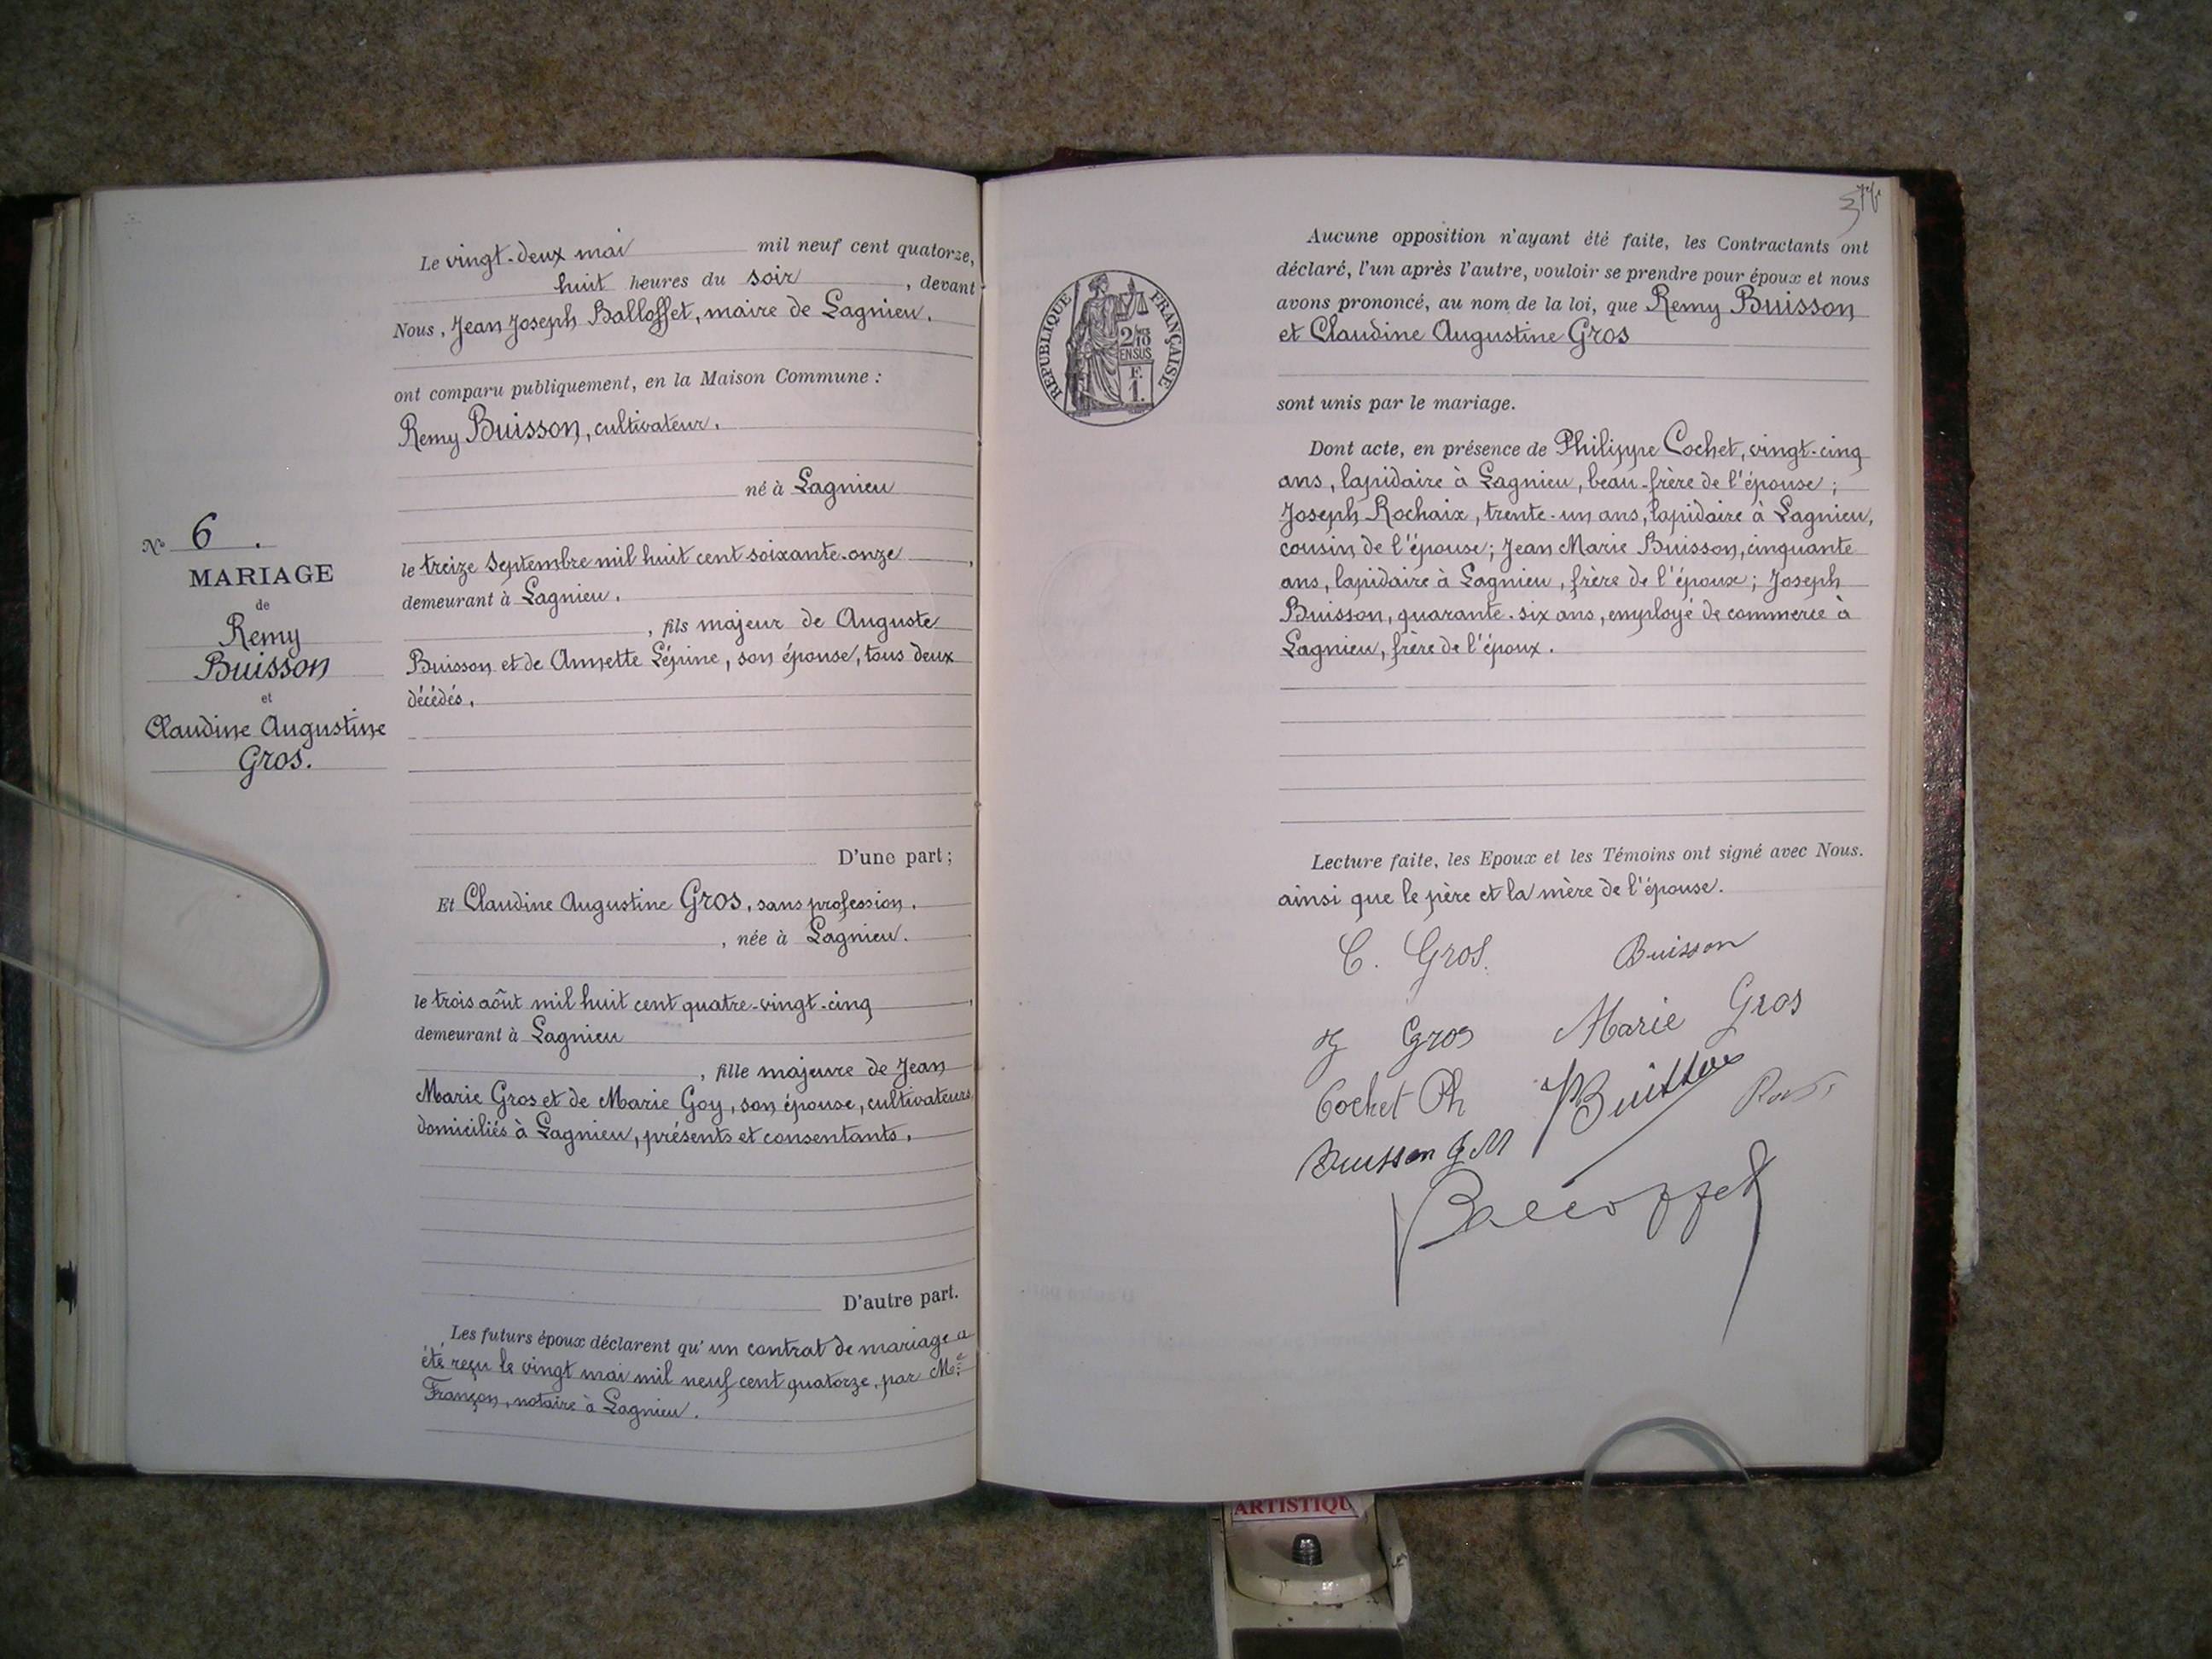 Le vingt-deux mai mil neuf cent quatorze,
huit heures du soir, devant
Nous, Jean Joseph Balloffet, maire de Lagnieu.
ont comparu publiquement, en la Maison Commune :
Remy Buisson, cultivateur.
né à Lagnieu
le treize Septembre mil huit cent soixante-onze,
demeurant à Lagnieu.
, fils majeur de Auguste
Buisson et de Annette Lépine, son épouse, tous deux
décédés.
D'une part ;
Et Claudine Augustine Gros, sans profession.
, née à Lagnieu.
le trois août mil huit cent quatre-vingt-cinq,
demeurant à Lagnieu
, fille majeure de Jean
Marie Gros et de Marie Goy, son épouse, cultivateurs
domiciliés à Lagnieu, présents et consentants.
D'autre part.
Les futurs époux déclarent qu'un contrat de mariage a
été reçu le vingt mai mil neuf cent quatorze, par Me
Françon, notaire à Lagnieu.
No 6.
MARIAGE
de
Remy
Buisson
et
Claudine Augustine
Gros.
RÉPUBLIQUE FRANÇAISE
2/10
EN SUS
F.
1.
Aucune opposition n'ayant été faite, les Contractants ont
déclaré, l'un après l'autre, vouloir se prendre pour époux et nous
avons prononcé, au nom de la loi, que Remy Buisson
et Claudine Augustine Gros
sont unis par le mariage.
Dont acte, en présence de Philippe Cochet, vingt-cinq
ans, lapidaire à Lagnieu, beau-frère de l'épouse ;
Joseph Rochaix, trente-un ans, lapidaire à Lagnieu,
cousin de l'épouse ; Jean Marie Buisson, cinquante
ans, lapidaire à Lagnieu, frère de l'époux ; Joseph
Buisson, quarante-six ans, employé de commerce à
Lagnieu, frère de l'époux.
Lecture faite, les Epoux et les Témoins ont signé avec Nous.
ainsi que le père et la mère de l'épouse.
C. Gros. Buisson
Gros Marie Gros
Cochet Ph Buisson
Buisson J M
Balloffet
ARTISTIQU